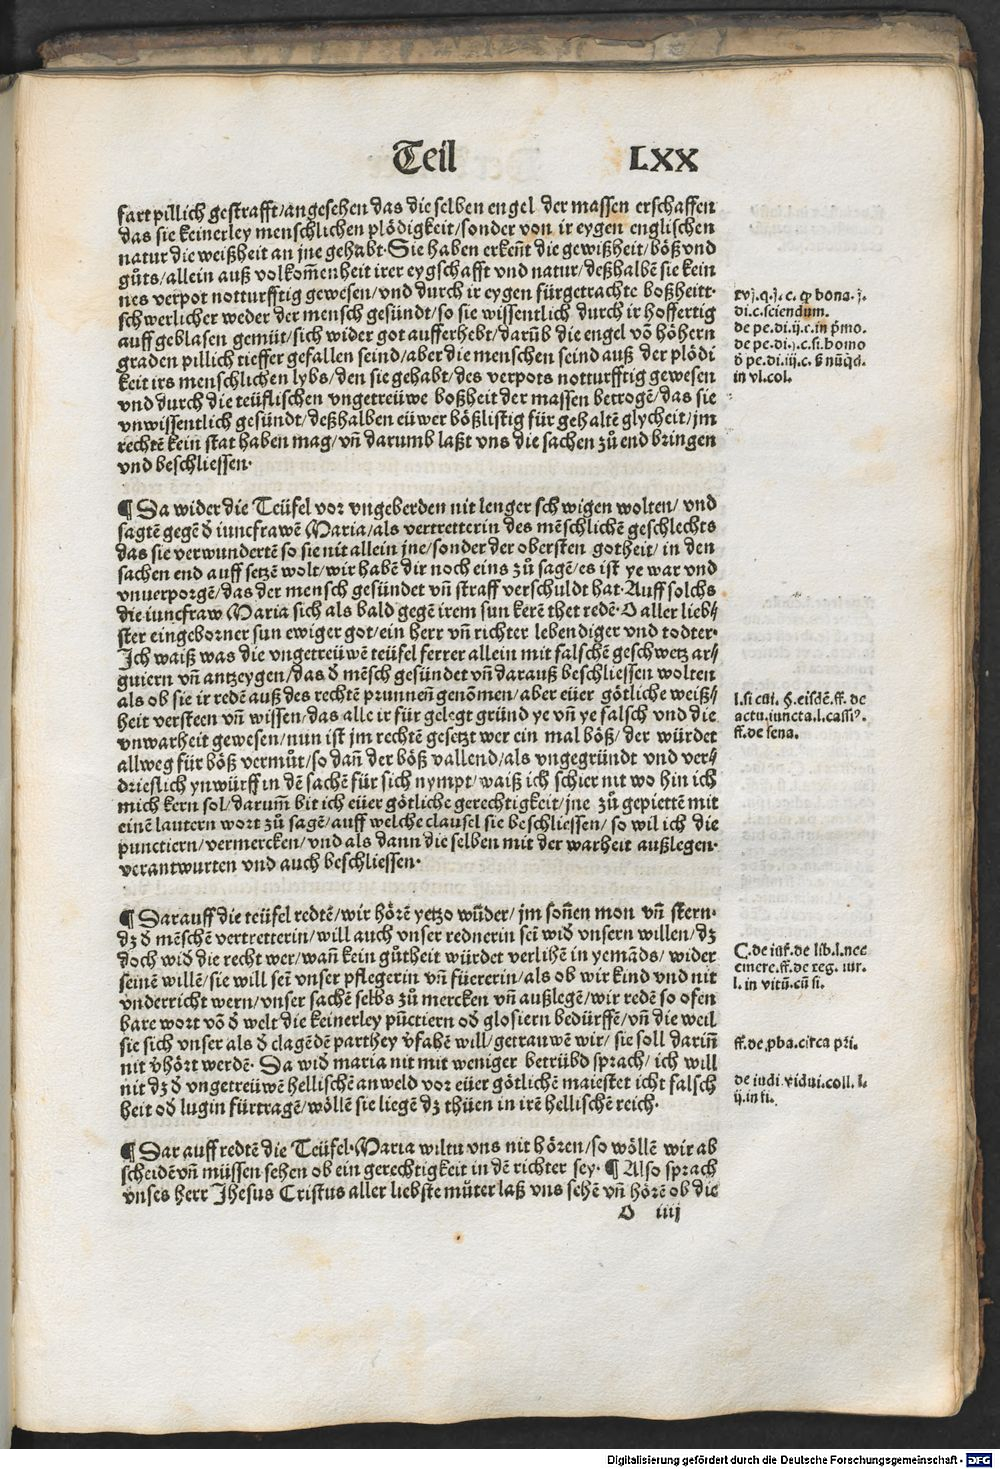 Teil LXX
fart pillich gestrafft/angesehen das die selben engel der massen erschaffen
das sie keinerley menschlichen plödigkeit/sonder von ir eygen englischen
natur die weißheit an jne gehabt·Sie haben erkeñt die gewißheit/böß vnd
gůts/allein auß volkom̄enheit irer eygschafft vnd natur/deßhalbē sie kein
nes verpot notturfftig gewesen/vnd durch ir eygen fürgetrachte boßheitt·
schwerlicher weder der mensch gesündt/so sie wissentlich durch ir hoffertig
auff geblasen gemüt/sich wider got aufferhebt/darūb die engel vō höhern
graden pillich tieffer gefallen seind/aber die menschen seind auß der plödi
keit irs menschlichen lybs/den sie gehabt/des verpots notturfftig gewesen
vnd durch die teüflischen vngetreüwe boßheit der massen betrogē/das sie
vnwissentlich gesündt/deßhalben eüwer bößlistig für gehaltē glycheit/jm
rechtē kein stat haben mag/vñ darumb laßt vns die sachen zů end bringen
vnd beschliessen·
rvj.q.j. c. ꝙ bona. j.
di.c.sciendum.
de pe.di.ij.c.in p̄mo.
de pe.di.j.c.si.homo
đ pe.di.iij.c. s̄ nūq̄d.
in vl.col.
¶ Da wider die Teüfel vor vngeberden nit lenger schwigen wolten/ vnd
sagtē gegē đ iuncfrawē Maria/als vertretterin des mēschlichē geschlechts
das sie verwundertē so sie nit allein jne/sonder der obersten gotheit/ in den
sachen end auff setzē wolt/wir habē dir noch eins zů sagē/es ist ye war vnd
vnuerporgē/das der mensch gesündet vñ straff verschuldt hat·Auff solchs
die iuncfraw Maria sich als bald gegē irem sun kerē thet redē·O aller lieb⸗
ster eingeborner sun ewiger got/ein herr vñ richter lebendiger vnd todter·
Ich waiß was die vngetreüwē teüfel ferrer allein mit falschē geschwetz ar⸗
guiern vñ antzeygen/das đ mēsch gesündet vñ darauß beschliessen wolten
als ob sie ir redē auß des rechtē prunneñ genōmen/aber eüer götliche weiß⸗
heit versteen vñ wissen/das alle ir für gelegt gründ ye vñ ye falsch vnd die
vnwarheit gewesen/nun ist jm rechtē gesetzt wer ein mal böß/ der würdet
allweg für böß vermůt/so dañ der böß vallend/als vngegründt vnd ver⸗
drieslich ynwürff in dē sachē für sich nympt/waiß ich schier nit wo hin ich
mich kern sol/darum̄ bit ich eüer götliche gerechtigkeit/jne zů gepiettē mit
einē lautern wort zů sagē/auff welche clausel sie beschliessen/ so wil ich die
punctiern/vermercken/vnd als dann die selben mit der warheit außlegen·
verantwurten vnd auch beschliessen·
l.si cui. §.eisdē.ff. de
actu.iuncta.l.cassiꝰ.
ff.de sena.
¶ Darauff die teüfel redtē/wir hörē yetzo wūder/ jm soñen mon vñ stern·
dz đ mēschē vertretterin/will auch vnser rednerin sei wiđ vnsern willen/dz
doch wiđ die recht wer/wañ kein gůtheit würdet verlihē in yemāds/ wider
seinē willē/sie will sei vnser pflegerin vñ füererin/als ob wir kind vnd nit
vnderricht wern/vnser sachē selbs zů mercken vñ außlegē/wir redē so ofen
bare wort vō đ welt die keinerley pūctiern ođ glosiern bedürffē/vñ die weil
sie sich vnser als đ clagēdē parthey v̄fahē will/getrauwē wir/ sie soll dariñ
nit v̄hört werdē· Da wiđ maria nit mit weniger betrübđ sprach/ ich will
nit dz đ vngetreüwē hellischē anweld vor eüer götlichē maiestet icht falsch
heit ođ lugin fürtragē/wöllē sie liegē dz thüen in irē hellischē reich·
C.de iur̄.de lib.l.nec
emere.ff.de reg. iur.
l. in vitū.cū si.
ff.de ꝓba.circa pri.
de iudi.vidui.coll. l.
ij.in fi.
¶ Dar auff redtē die Teüfel·Maria wiltu vns nit hören/so wöllē wir ab
scheidē vñ müssen sehen ob ein gerechtigkeit in dē richter sey· ¶ Also sprach
vnses herr Jhesus Cristus aller liebste můter laß vns sehē vñ hörē ob die
O iiij
Digitalisierung gefördert durch die Deutsche Forschungsgemeinschaft - DFG